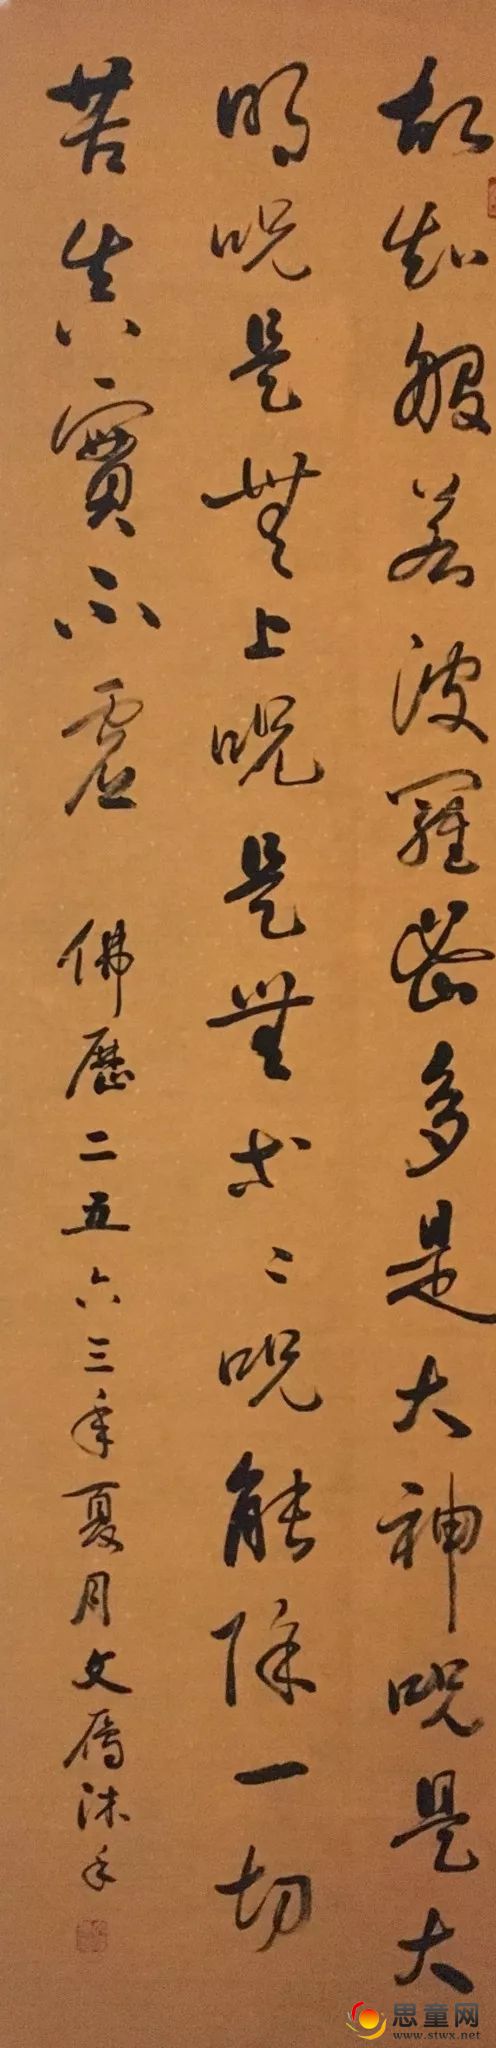 故知般若波羅蜜多是大神呪是大
明呪是無上呪是無等〻呪能除一切
苦真實不虛 佛歷二五六三年夏月文雁沐手
思童网
www.stwx.net